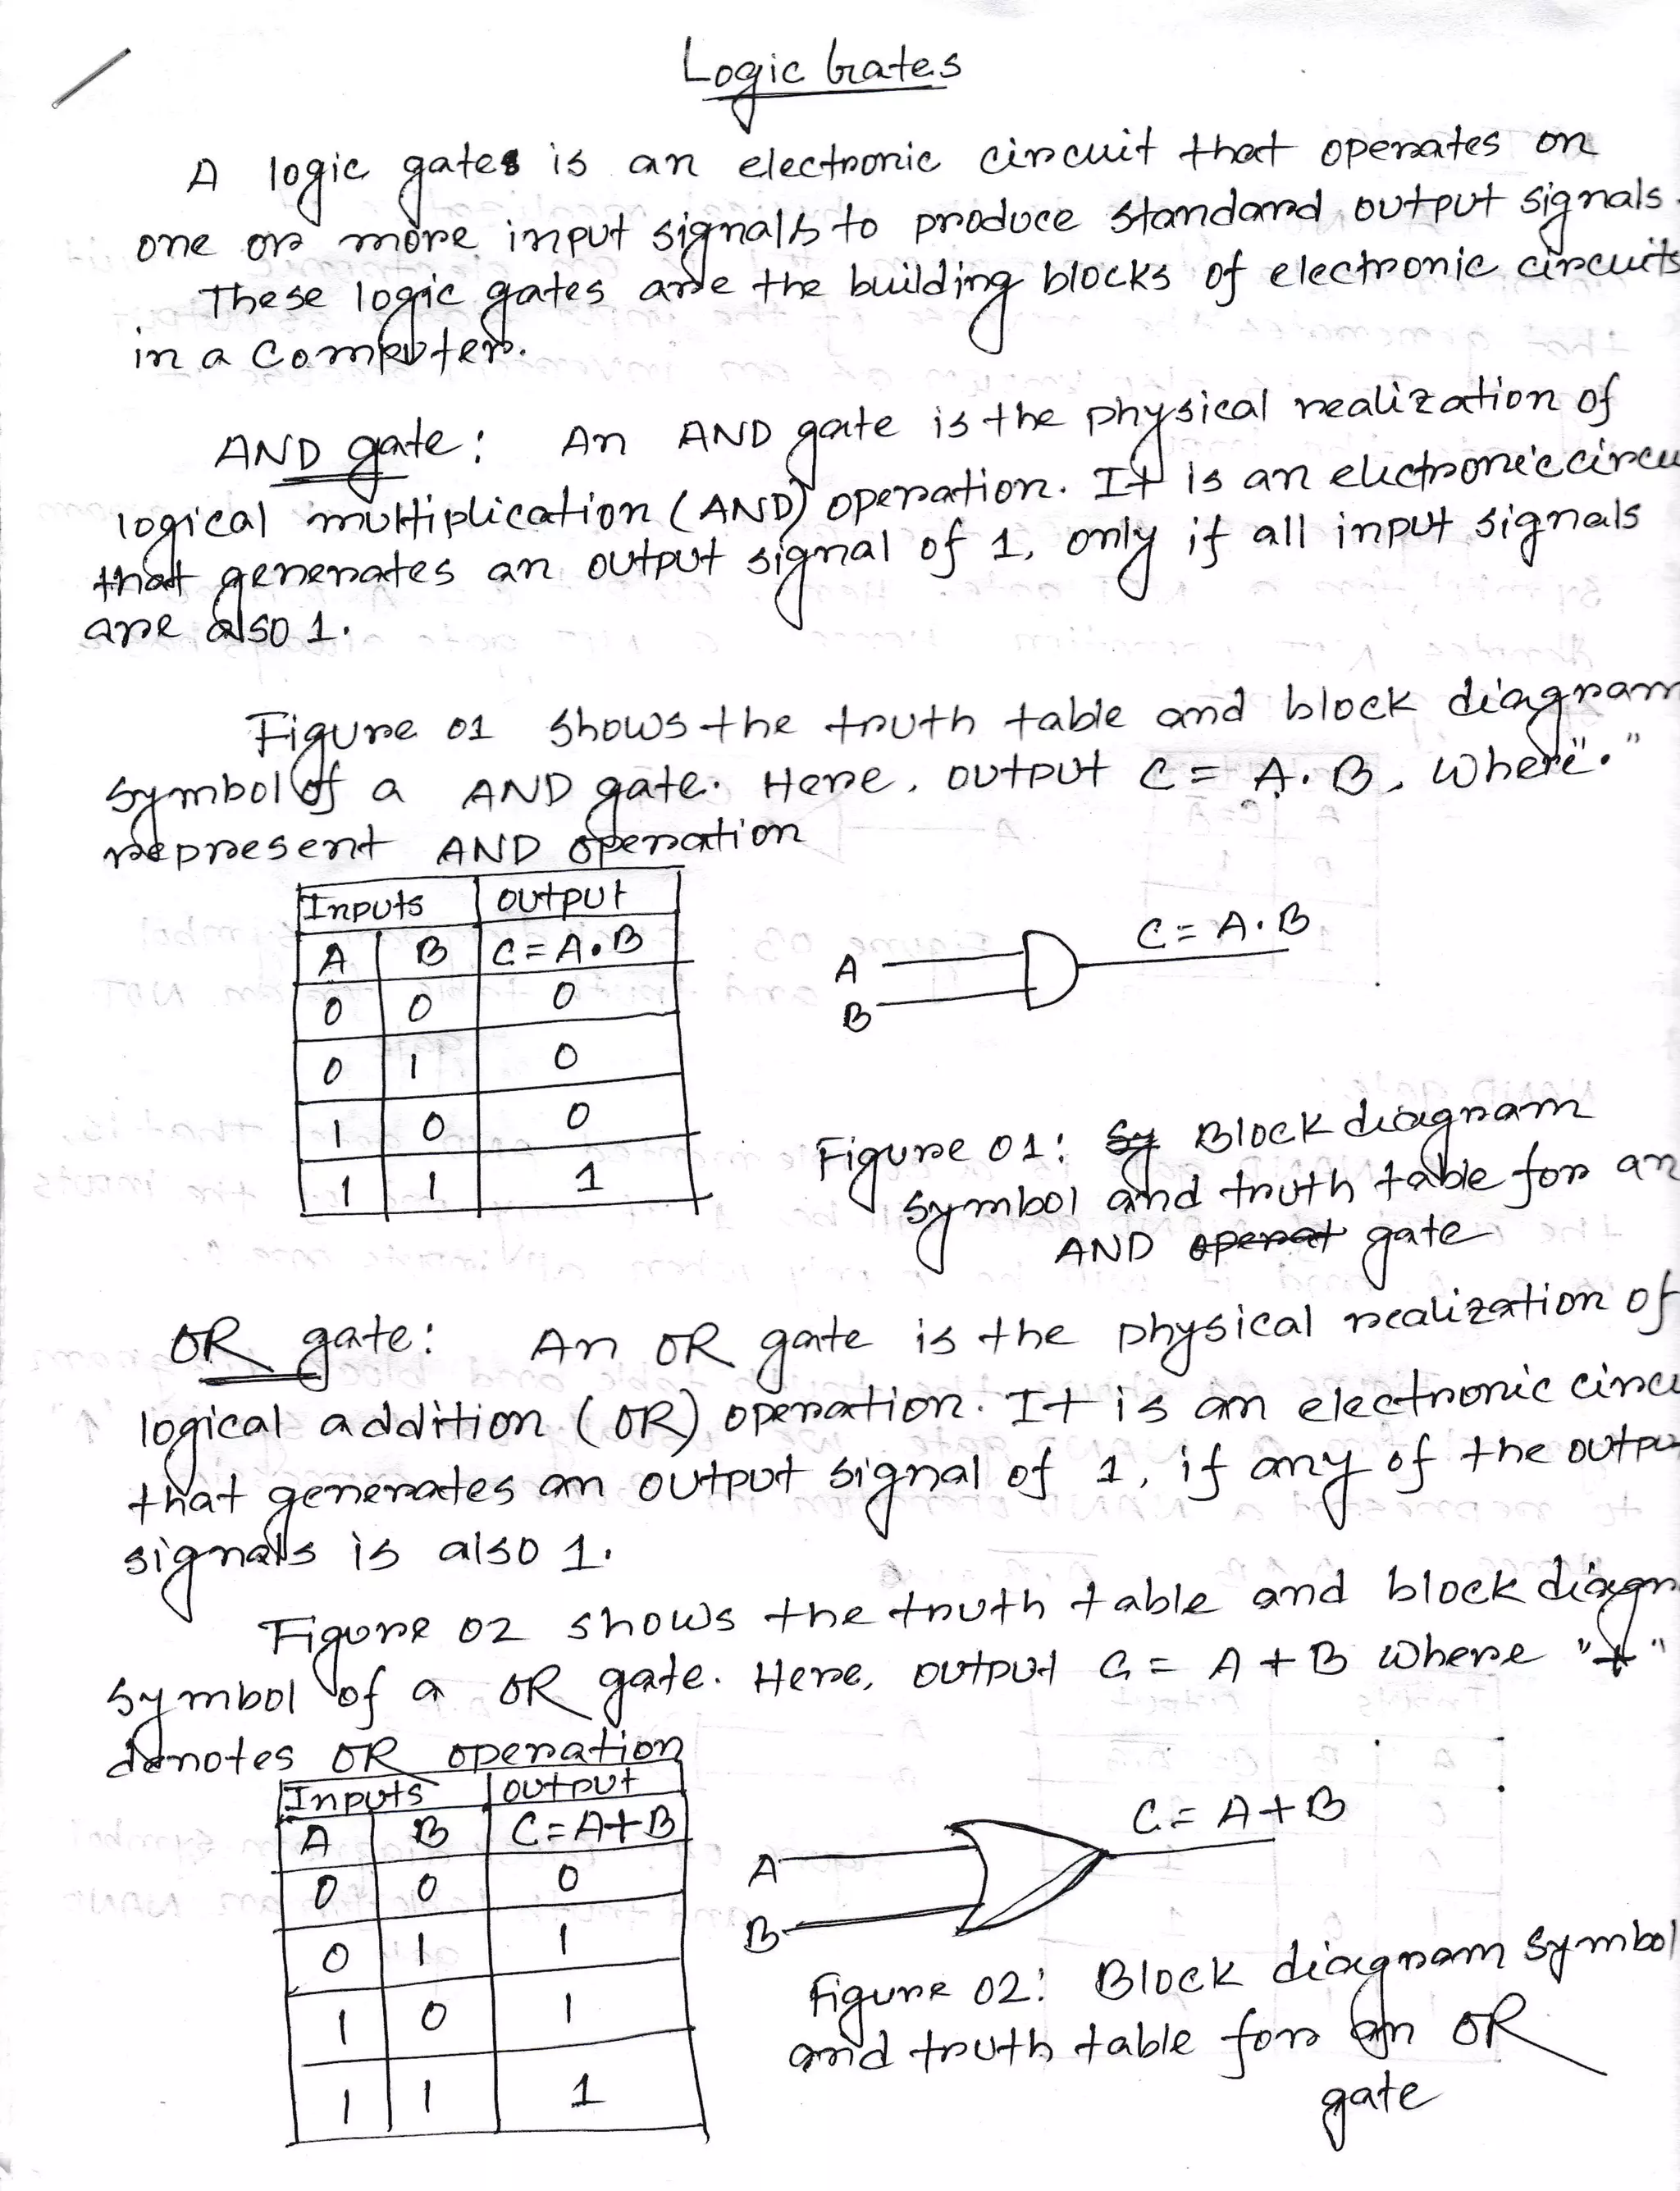 Logic Gates
A logic gates is an electronic circuit that operates on
one or more input signals to produce standard output signals.
These logic gates are the building blocks of electronic circuits
in a computer.
AND gate: An AND gate is the physical realization of
logical multiplication (AND) operation. It is an electronic circu
that generates an output signal of 1, only if all input signals
are also 1.
Figure 01 shows the truth table and block diagram
symbol of a AND gate. Here, output C = A. B, where "."
represent AND operation
Inputs output
A B C = A.B
0 0 0
0 1 0
1 0 0
1 1 1
A
B
C = A.B
Figure 01: Sy Block diagram
symbol and truth table for an
AND operat gate
OR gate: An OR gate is the physical realization of
logical addition (OR) operation. It is an electronic circu
that generates an output signal of 1, if any of the outpu
signals is also 1.
Figure 02 shows the truth table and block diagr
symbol of a OR gate. Here, output C = A + B where "+"
denotes OR operation
Inputs output
A B C = A+B
0 0 0
0 1 1
1 0 1
1 1 1
A
B
C = A+B
Figure 02: Block diagram symbol
and truth table for an OR
gate